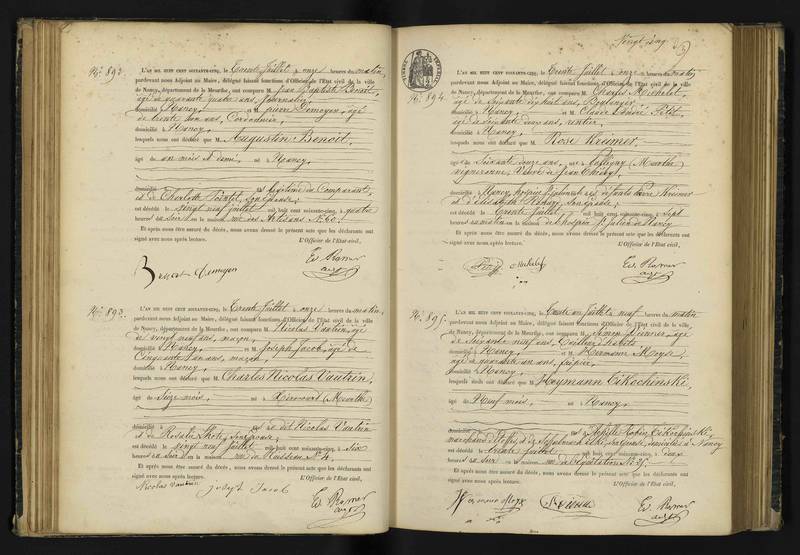 No. 892.
L'AN MIL HUIT CENT SOIXANTE-CINQ, le Trente Juillet à onze heures du matin,
pardevant nous Adjoint au Maire, délégué faisant fonctions d'Officier de l'Etat civil de la ville
de Nancy, département de la Meurthe, ont comparu M. Jean Baptiste Benoit,
âgé de quarante quatre ans, journalier,
domicilié à Nancy, et M. pierre Demoyen, âgé
de trente ans, Cordonnier,
domicilié à Nancy,
lesquels nous ont déclaré que M. Augustin Benoit,
âgé de un mois et demi, né à Nancy,
domicilié fils légitime du Comparant,
et de Charlotte Pointel, son épouse;
est décédé le vingt neuf juillet mil huit cent soixante-cinq, à quatre
heures du soir en la maison rue des Artisans No. 60.
Et après nous être assuré du décès, nous avons dressé le présent acte que les déclarants ont
signé avec nous après lecture. L'Officier de l'Etat-civil,
Benoit Demoyen Ev. Ramer
No. 893.
L'AN MIL HUIT CENT SOIXANTE-CINQ, le Trente Juillet à onze heures du matin,
pardevant nous Adjoint au Maire, délégué faisant fonctions d'Officier de l'Etat civil de la ville
de Nancy, département de la Meurthe, ont comparu M. Nicolas Vautrin, âgé
de vingt neuf ans, maçon,
domicilié à Nancy, et M. Joseph Jacob, âgé de
Cinquante ans, maçon,
domicilié à Nancy,
lesquels nous ont déclaré que M. Charles Nicolas Vautrin,
âgé de Seize mois, né à (Meurthe)
domicilié à fils de dit Nicolas Vautrin
et de Rosalie son épouse;
est décédé le vingt neuf juillet mil huit cent soixante-cinq, à six
heures du soir en la maison rue du Ruisseau No. 4.
Et après nous être assuré du décès, nous avons dressé le présent acte que les déclarants ont
signé avec nous après lecture. L'Officier de l'Etat civil,
Nicolas Vautrin Joseph Jacob Ev. Ramer
Vingt cinq
No. 894.
L'AN MIL HUIT CENT SOIXANTE-CINQ, le Trente Juillet à onze heures du matin
pardevant nous Adjoint au Maire, délégué faisant fonctions d'Officier de l'Etat civil de la ville
de Nancy, département de la Meurthe, ont comparu M. Charles
âgé de Cinquante huit ans, Boulanger,
domicilié à Nancy, et M. Claude Petit,
âgé de soixante deux ans, rentier,
domicilié à Nancy,
lesquels nous ont déclaré que M. Rose Krémer,
âgée de Soixante douze ans, née à (Meurthe)
vigneronne, Veuve de Jean
domiciliée à Nancy, fille des défunts Pierre Krémer
et d'Elisabeth son épouse;
est décédée le Trente Juillet, mil huit cent soixante-cinq, à sept
heures du matin en la maison de l'hospice St Julien de Nancy
Et après nous être assuré du décès, nous avons dressé le présent acte que les déclarants ont
signé avec nous après lecture. L'Officier de l'Etat civil,
Petit Ev. Ramer
No. 895.
L'AN MIL HUIT CENT SOIXANTE-CINQ, le Trente un Juillet à neuf heures du matin
pardevant nous Adjoint au Maire, délégué faisant fonctions d'Officier de l'Etat civil de la ville
de Nancy, département de la Meurthe, ont comparu M. Simon
de Soixante neuf ans,
domicilié à Nancy, et M. Hermann Meyer,
âgé de quarante un ans, fripier,
domicilié à Nancy,
lesquels nous ont déclaré que M. Heymann Cikachinski,
âgé de Neuf mois, né à Nancy,
domicilié à fils de
marchand d'étoffes, et de son épouse, domiciliés à Nancy
est décédé le trente juillet mil huit cent soixante-cinq, à deux
heures du soir en la maison
Et après nous être assuré du décès, nous avons dressé le présent acte que les déclarants ont
signé avec nous après lecture. L'Officier de l'Etat civil,
Ev. Ramer